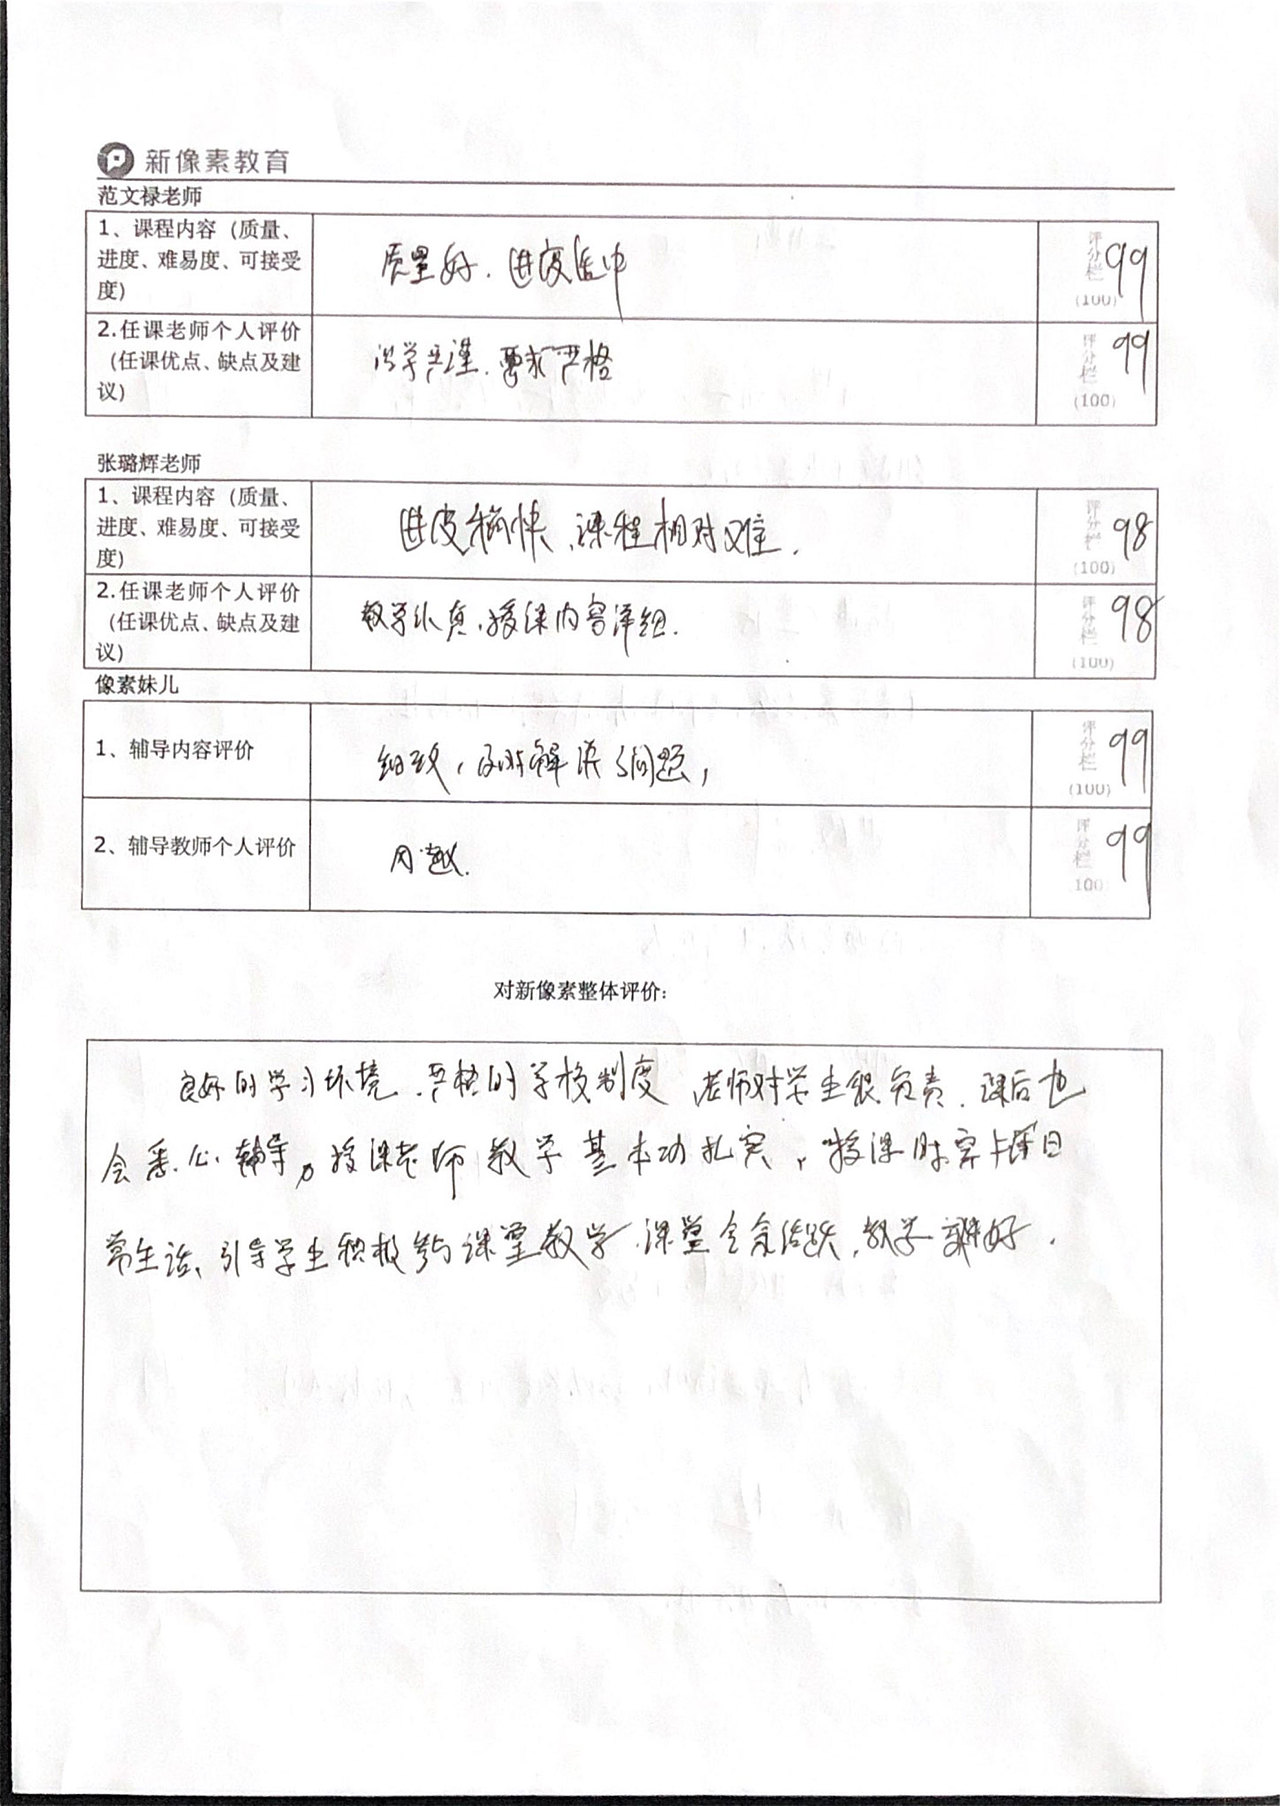 新像素教育
范文禄老师
1、课程内容（质量、
进度、难易度、可接受
度）
质量好、进度适中
评分栏
(100)
99
2.任课老师个人评价
（任课优点、缺点及建
议）
治学严谨、要求严格
评分栏
(100)
99
张璐辉老师
1、课程内容（质量、
进度、难易度、可接受
度）
进度稍快、课程相对难.
评分栏
(100)
98
2.任课老师个人评价
（任课优点、缺点及建
议）
教学认真、授课内容详细.
评分栏
(100)
98
像素妹儿
1、辅导内容评价
细致，及时解决了问题，
评分栏
(100)
99
2、辅导教师个人评价
评分栏
100
99
对新像素整体评价：
良好的学习环境、严格的学校制度 老师对学生很负责、课后也
会悉心辅导，授课老师教学基本功扎实，授课时穿插日
常生活、引导学生积极参与课堂教学、课堂气氛活跃，教学效果好.